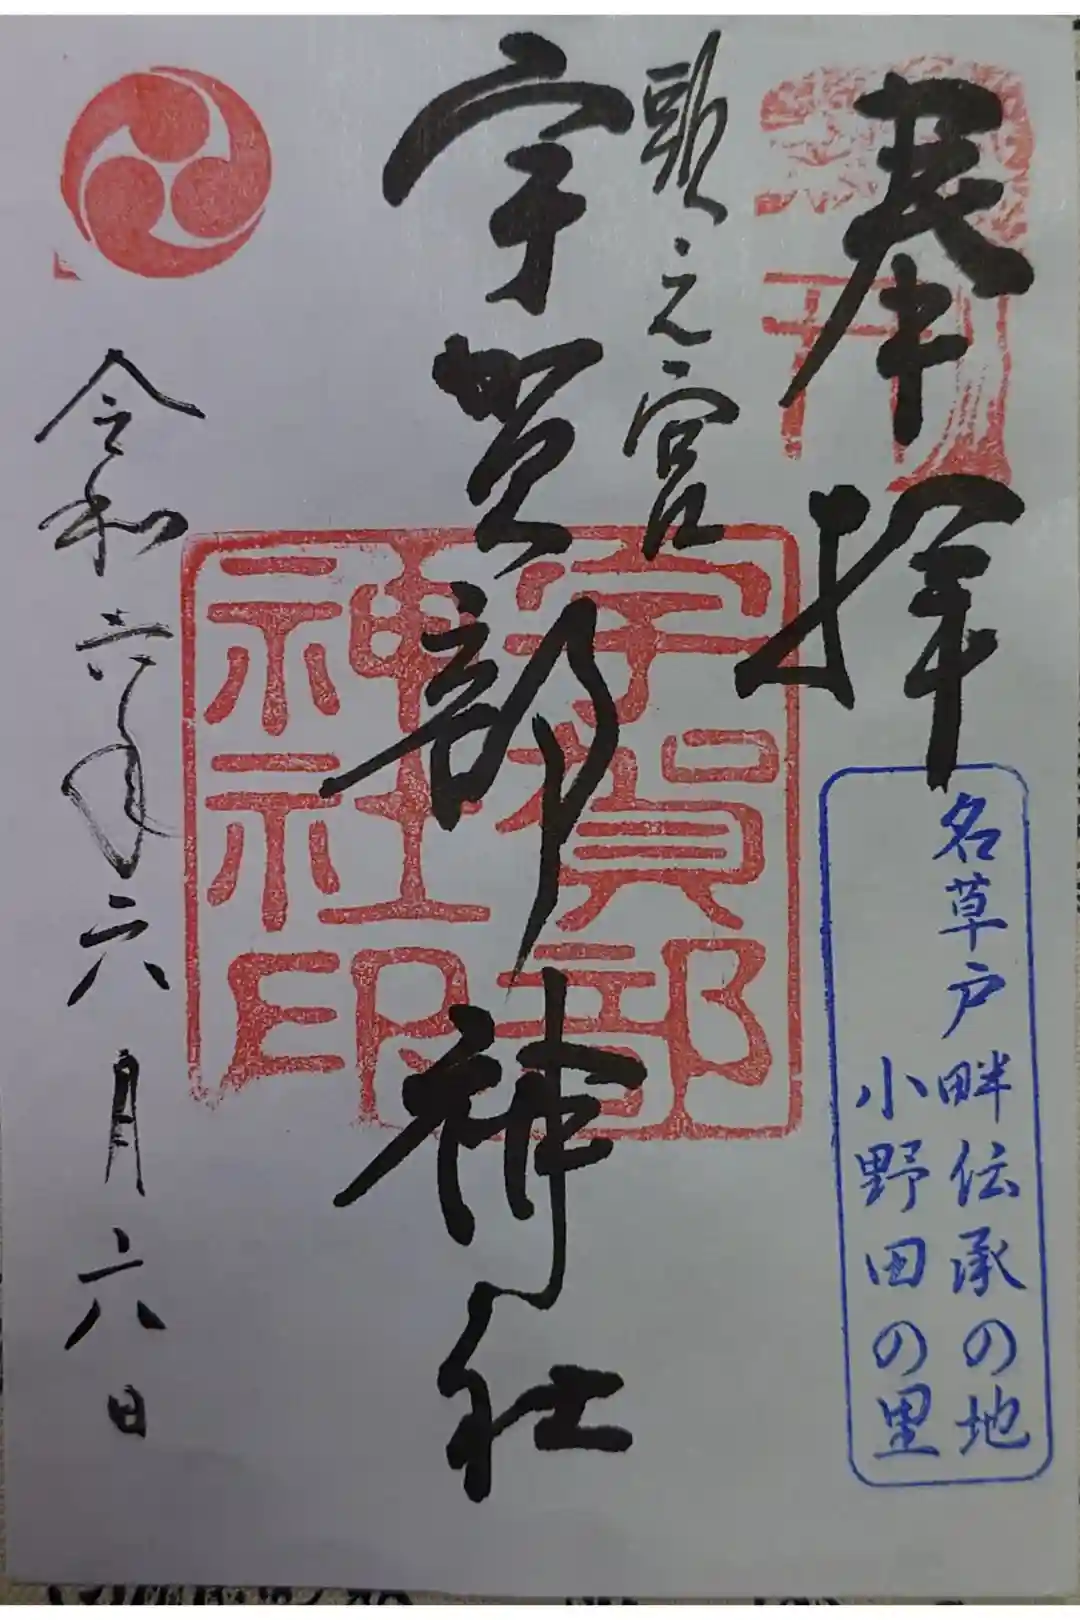 奉拝
名草戸畔伝承の地
小野田の里
頭之宮
宇賀部神社
宇賀部
神社印
令和六年六月六日